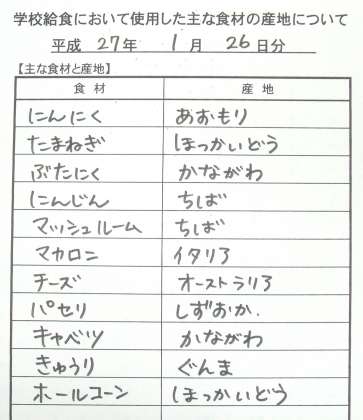 学校給食において使用した主な食材の産地について
平成 27年 1月 26日分
【主な食材と産地】
食材 産地
にんにく あおもり
たまねぎ ほっかいどう
ぶたにく かながわ
にんじん ちば
マッシュルーム ちば
マカロニ イタリア
チーズ オーストラリア
パセリ しずおか.
キャベツ かながわ
きゅうり ぐんま
ホールコーン ほっかいどう